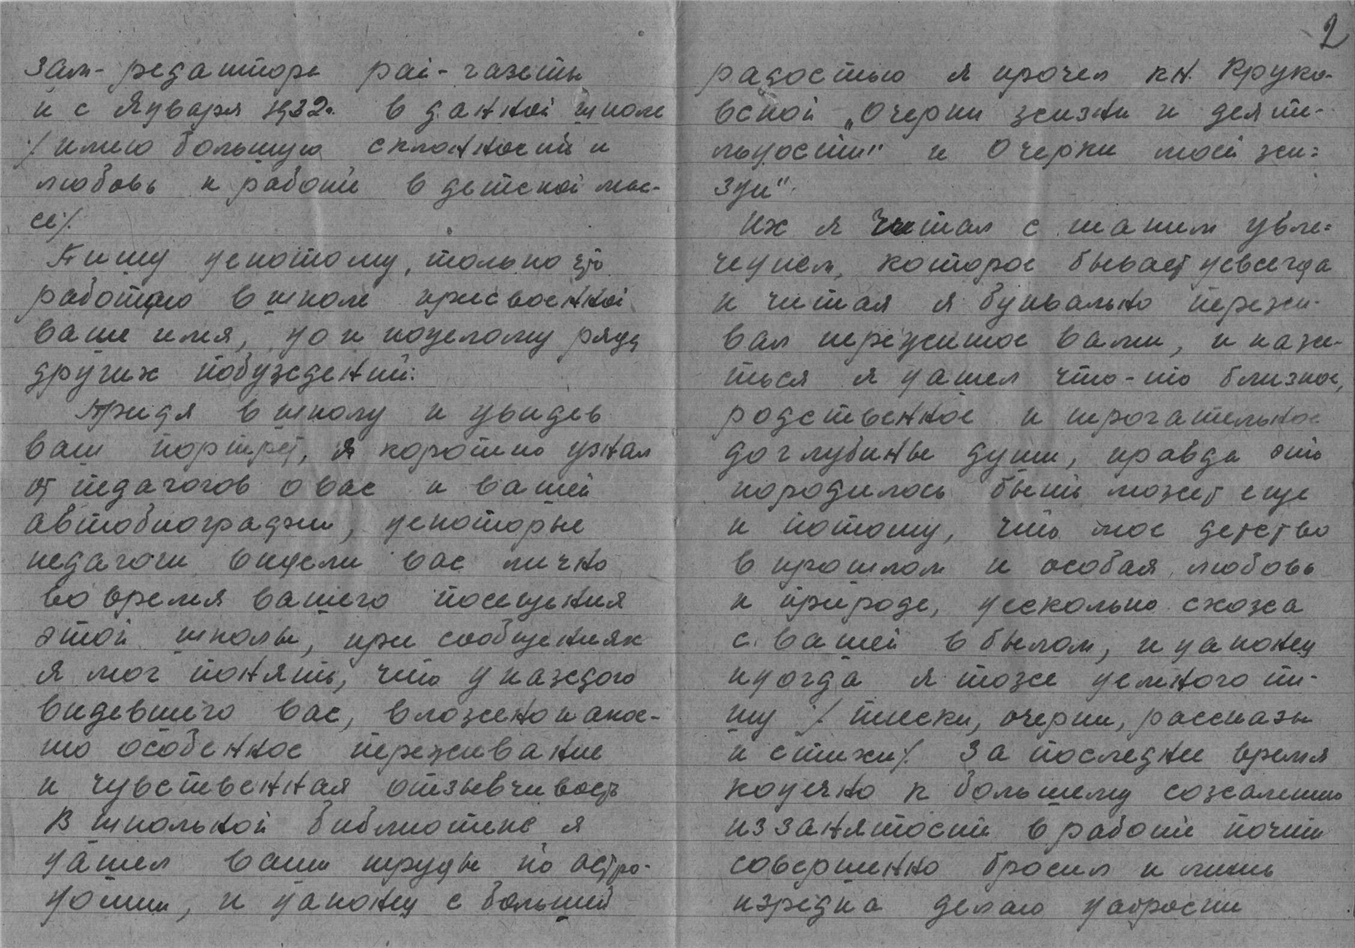 зам-редактора рай-газеты
и с января 1932г. в данной школе
/имею большую склонность и
любовь к работе в детской мас-
се/.
Пишу непотому, только что
работаю в школе присвоенной
ваше имя, но и поцелому ряду
других побуждений:
Придя в школу и увидев
ваш портрет, я коротко узнал
от педагогов о вас и вашей
автобиографии, некоторые
педагоги видели вас лично
во время вашего посещения
этой школы, при сообщениях
я мог понять, что у каждого
видевшего вас, вложено какое-
то особенное переживание
и чувственная отзывчивость
В школьной библиотеке я
нашел ваши труды по астро-
номии, и наконец с большей
2
радостью я прочел кн. Круко-
вской „Очерки жизни и деяте-
льности" и Очерки моей жи-
зни".
Их я читал с таким увле-
чением, которое бывает невсегда
и читая я буквально пережи-
вал пережитое вами, и каже-
ться я нашел что-то близкое,
родственное и трогательное
доглубины души, правда это
породилось быть может еще
и потому, что мое детство
в прошлом и особая любовь
к природе, несколько схожа
с вашей в былом, и наконец
иногда я тоже немного пи-
шу / пиески, очерки, рассказы
и стихи/. За последнее время
конечно к большему сожалению
иззанятости в работе почти
совершенно бросил и лишь
изредка делаю наброски